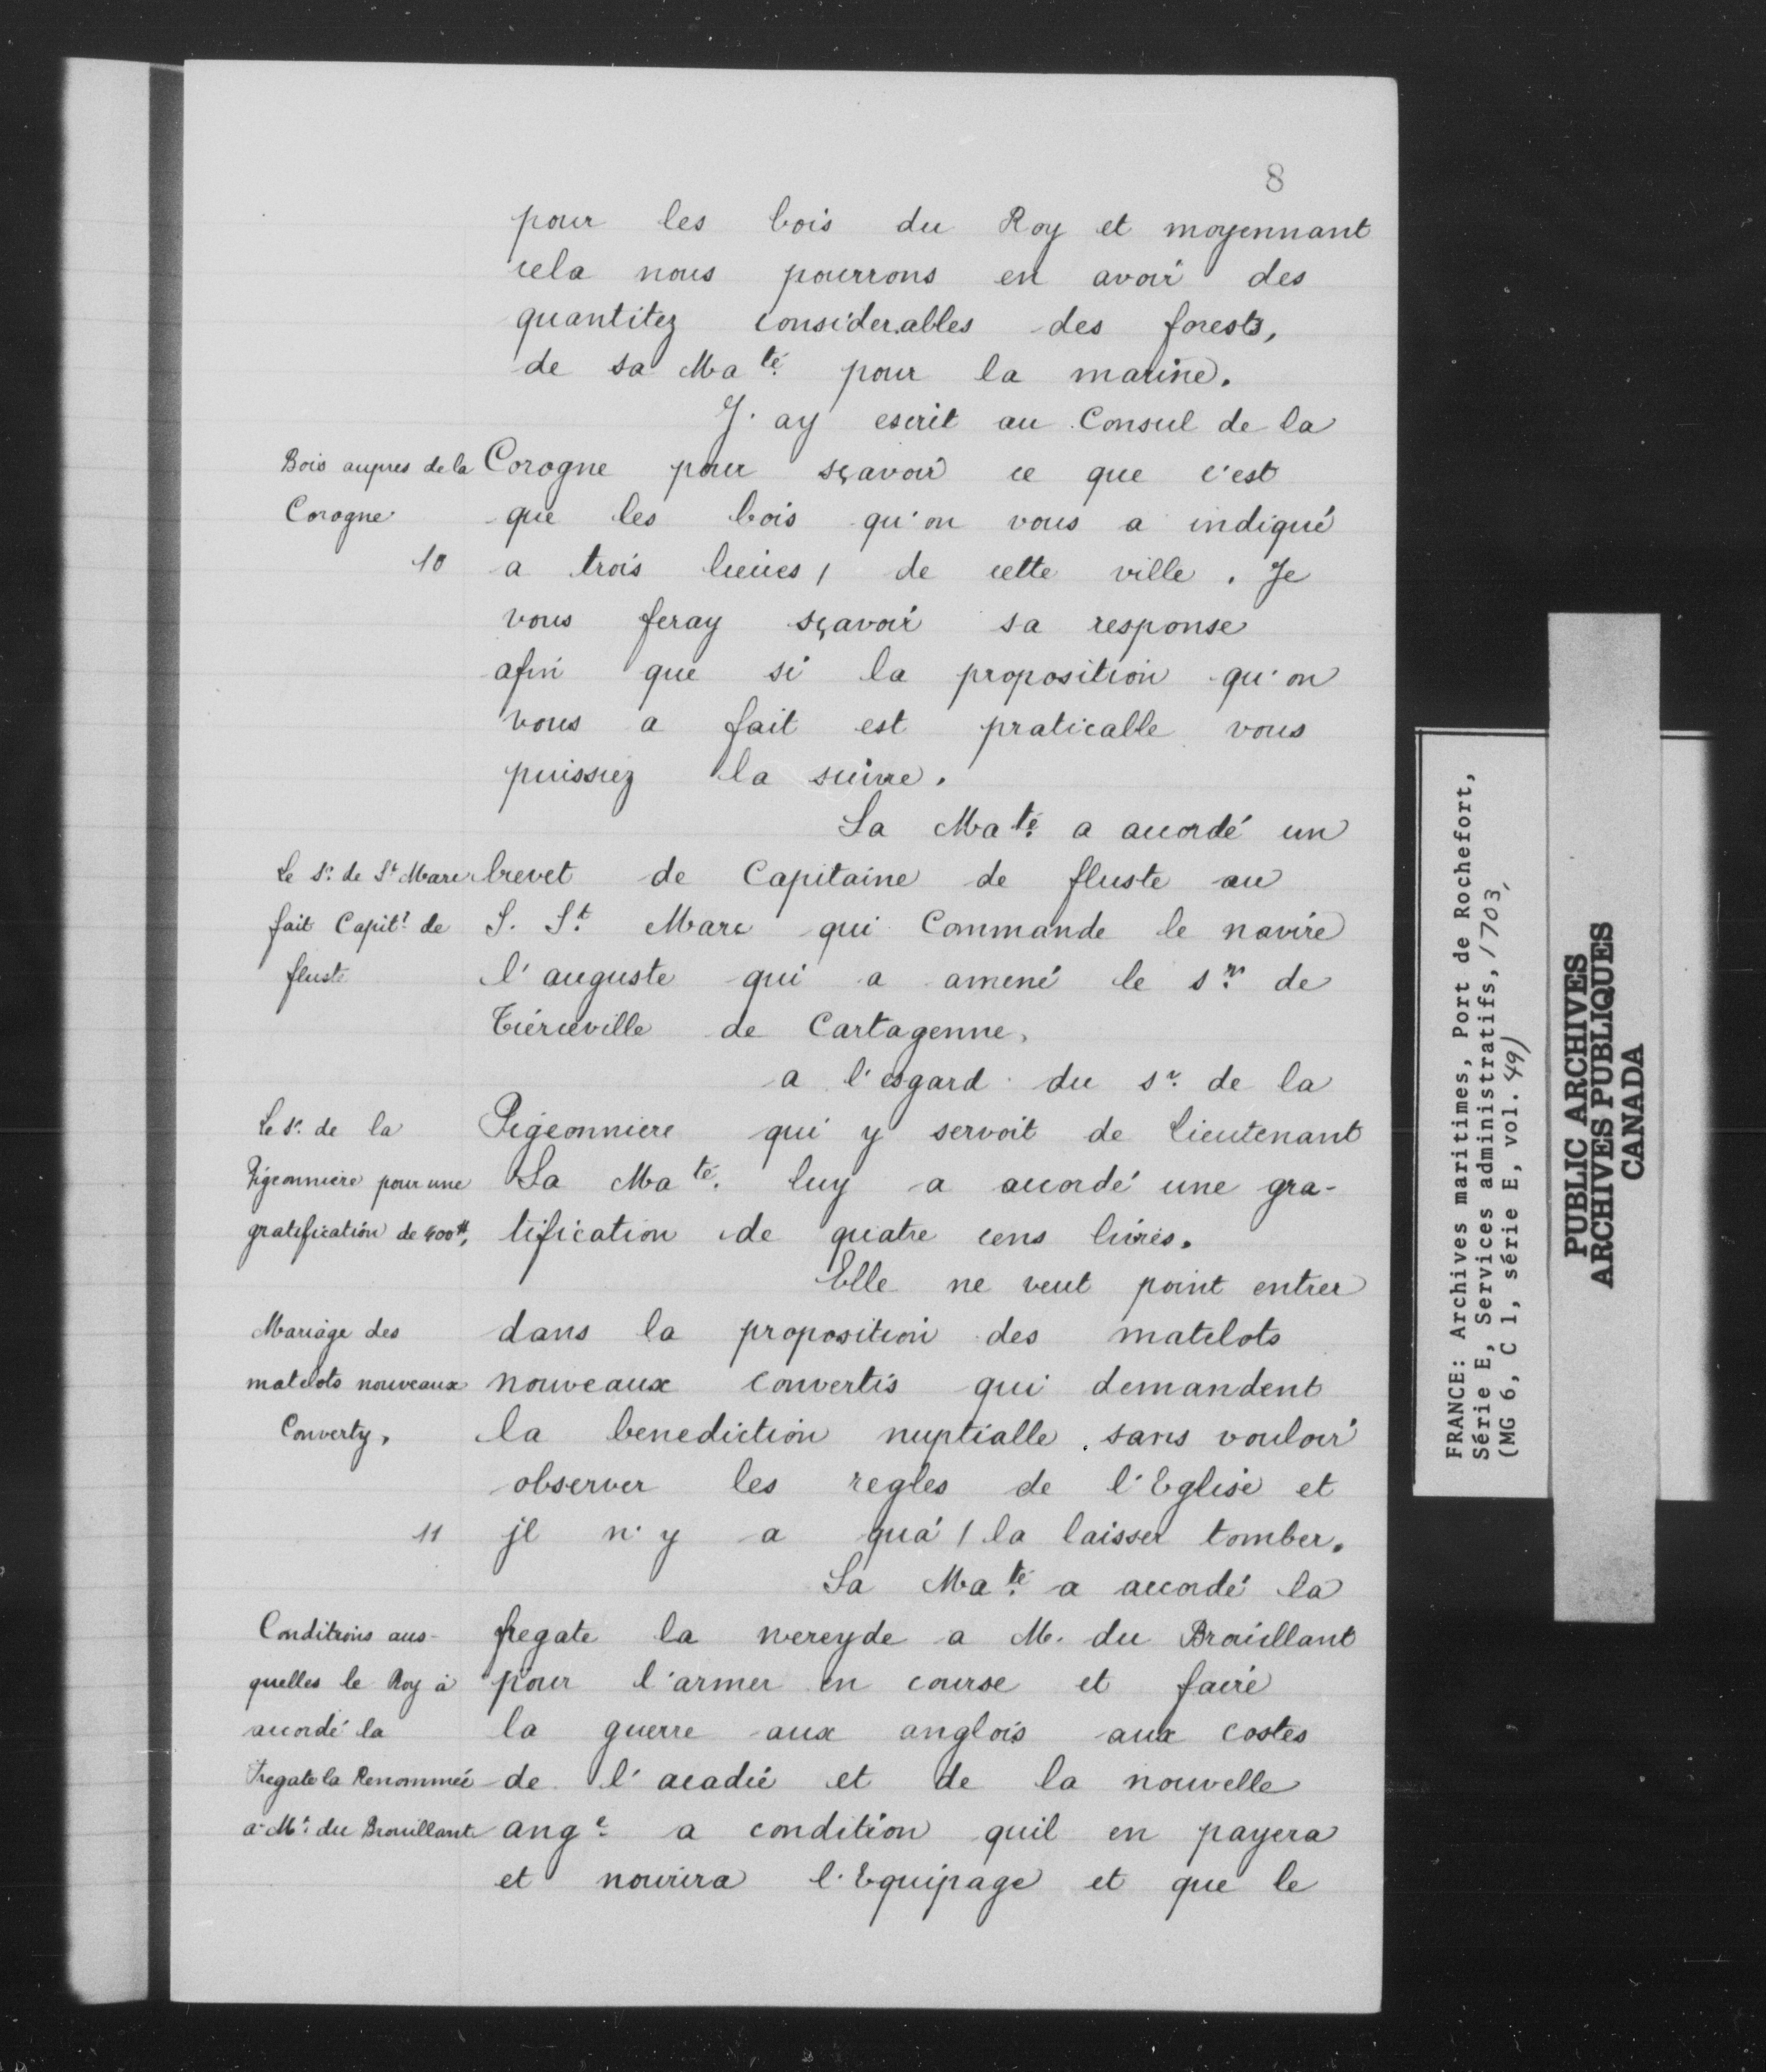 8
pour les bois du Roy et moyennant
cela nous pourrons en avoir des
quantitez considerables des forests,
de sa Ma.té pour la marine.
J'ay escrit au Consul de la
Bois aupres de la
Corogne
10
Corogne pour sçavoir ce que c'est
que les bois qu'on vous a indiqué
a trois lieües / de cette ville. Je
vous feray sçavoir sa response
afin que si la proposition qu'on
vous a fait est praticable vous
puissiez la suivre.
Sa Ma.té a accordé un
Le S.r de S.t Marc
fait Capit.e de
fluste
brevet de Capitaine de fluste au
S. S.t Marc qui Commande le navire
l'auguste qui a amené le s.r de
Tiérceville de Cartagenne,
a l'esgard du s.r de la
Le S.r de la
Pigeonniere pour une
gratification de 400#,
Pigeonniere qui y servoit de lieutenant
Sa Ma.té luy a accordé une gra-
tification de quatre cens livres.
Elle ne veut point entrer
Mariage des
matelots nouveaux
Converty,
dans la proposition des matelots
nouveaux convertis qui demandent
la benediction nuptialle, sans vouloir
observer les regles de l'Eglise et
11
jl n'y a qu'a / la laisser tomber.
Sa Ma.té a accordé la
Conditions aus-
quelles le Roy à
accordé la
Fregate la Renommée
a M.r du Brouillant
fregate la nereyde a M. du Brouillant
pour l'armer en course et faire
la guerre aux anglois aux costes
de l'acadie et de la nouvelle
ang.e a condition quil en payera
et nourira l'Equipage et que le
FRANCE: Archives maritimes, Port de Rochefort,
Série E, Services administratifs, 1703,
(MG 6, C 1, série E, vol. 49)
PUBLIC ARCHIVES
ARCHIVES PUBLIQUES
CANADA